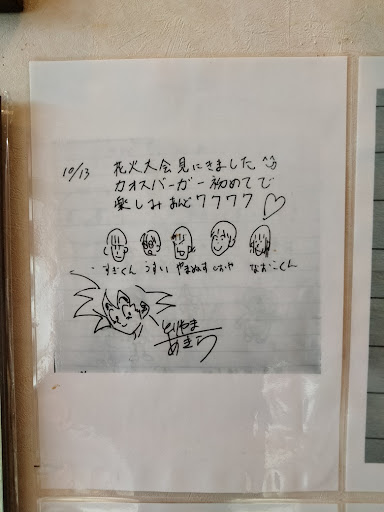 10/13 花火大会見にきました
カオスバーガー初めてで
楽しみあんどワクワク♡
すぎくん うすい やまぬす しおや なおこくん
とりやま
あきら